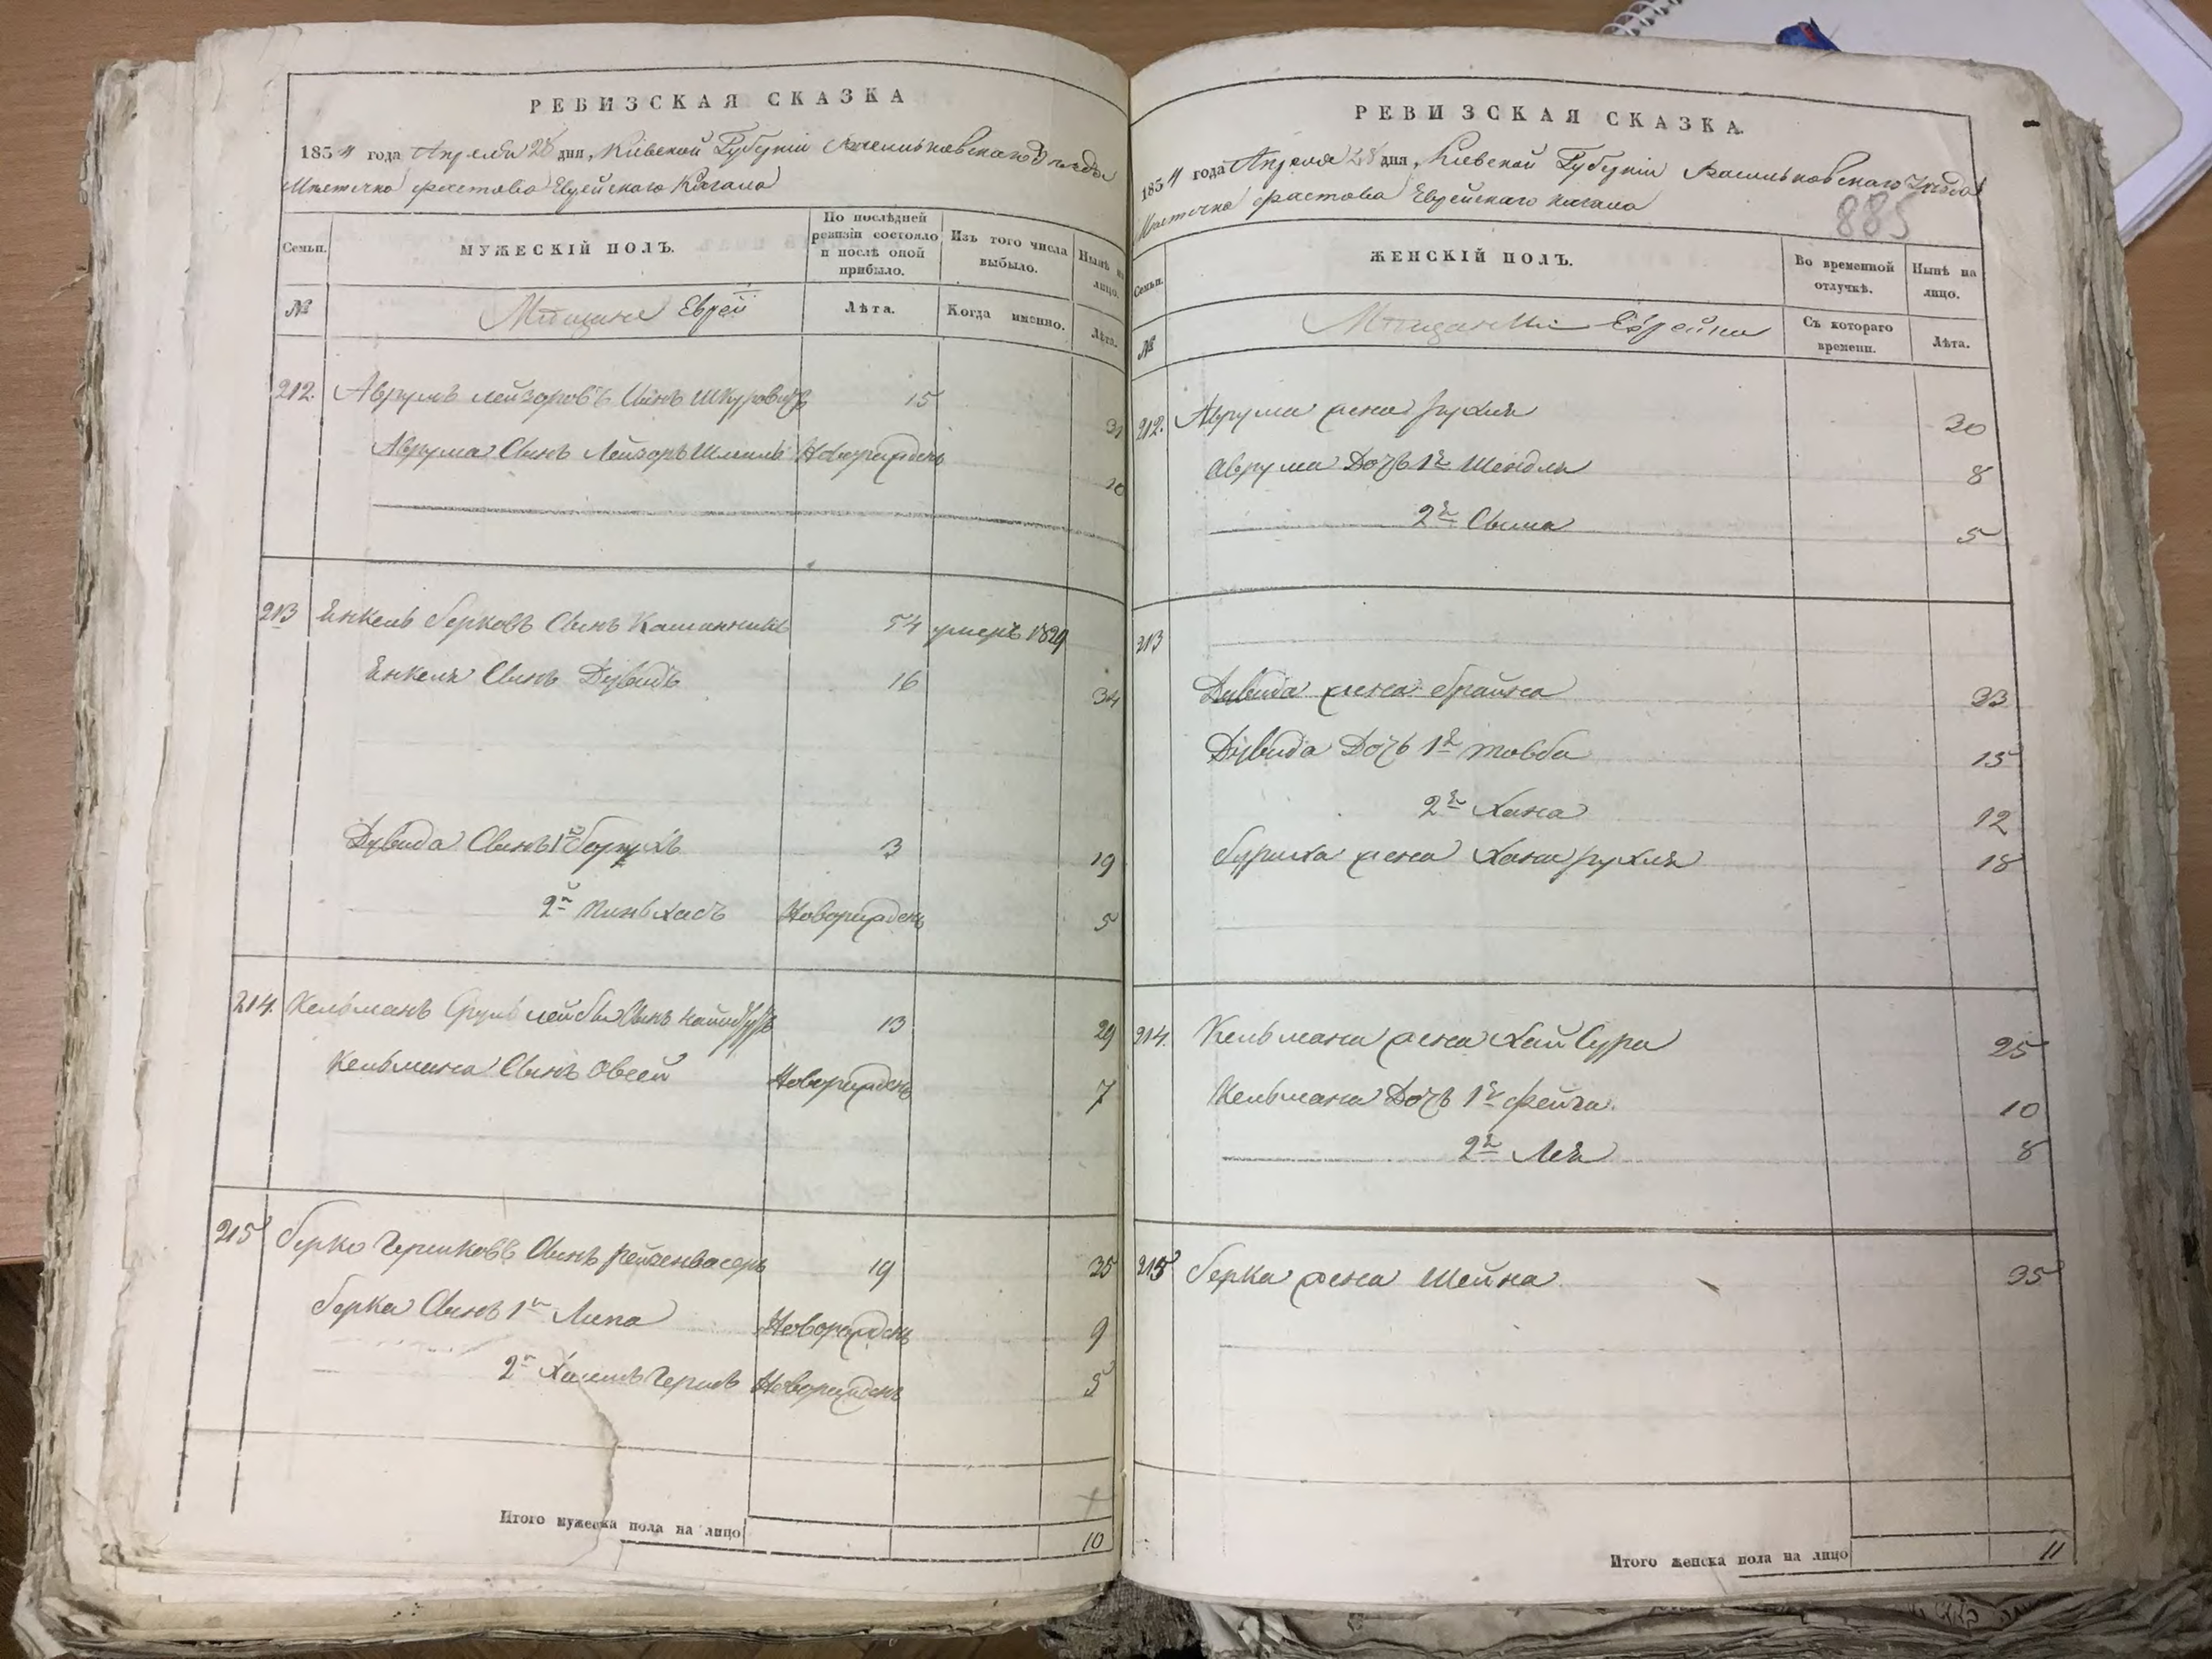 РЕВИЗСКАЯ СКАЗКА
185 4 года Апреля 28 дня, Киевской Губернiи Васильковскаго Уезда
Местечка фастова Еврейскаго Кагала
Семьи.
МУЖЕСКIЙ ПОЛЪ.
По послѣдней ревизiи состояло и послѣ оной прибыло.
Изъ того числа выбыло.
Нынѣ на лицо.
№
Мещане Евреи
Лѣта.
Когда именно.
Лѣта.
212. Аврумъ лейзоровъ Сынъ Шкуровичъ 15 31
Аврума Сынъ Лейзоръ Шмиль Новорожденъ 10
213 Енкель берковъ Сынъ 54 умеръ 1839
Енкеля Сынъ Дувидъ 16 34
Дувида Сынъ 1й борухъ 3 19
2й Пиньхасъ Новорожденъ 5
214. Кельманъ Сруль лейбы Сынъ 13 29
Кельмана Сынъ Овсей Новорожденъ 7
215 берко Гершковъ Сынъ Рейзенвасеръ 19 35
берка Сынъ 1й Липа Новорожденъ 9
2й Хаимъ Гершъ Новорожденъ 5
Итого мужеска пола на лицо 10
РЕВИЗСКАЯ СКАЗКА.
185 4 года Апреля 28 дня, Киевской Губернiи Васильковскаго Уезда
Местечка фастова Еврейскаго кагала
885
Семьи.
ЖЕНСКIЙ ПОЛЪ.
Во временной отлучкѣ.
Нынѣ на лицо.
№
Мещанки Еврейки
Съ котораго времени.
Лѣта.
212. Аврума жена рухля 30
Аврума Дочь 1я Шендля 8
2я Сима 5
213
Дувида жена брайна 33
Дувида Дочь 1я товба 15
2я Хана 12
буриха жена Хана рухля 18
214. Кельмана жена Хай Сура 25
Кельмана Дочь 1я фейга. 10
2я Лея 8
215 берка жена Шейна 35
Итого женска пола на лицо 11